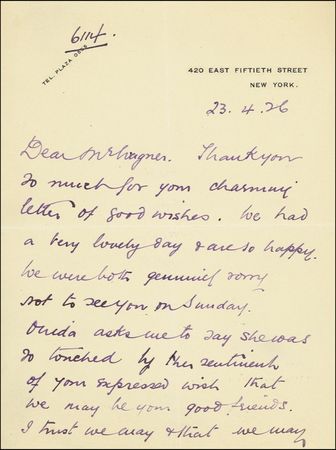 6114.
TEL. PLAZA
420 EAST FIFTIETH STREET
NEW YORK.
23. 4. 26
Dear Mr Wagner. Thank you
so much for your charming
letter of good wishes. We had
a very lovely day & are so happy.
We were both genuinely sorry
not to see you on Sunday.
asks me to say she was
so touched by the sentiment
of your expressed wish that
we may be your good friends.
I trust we may & that we may